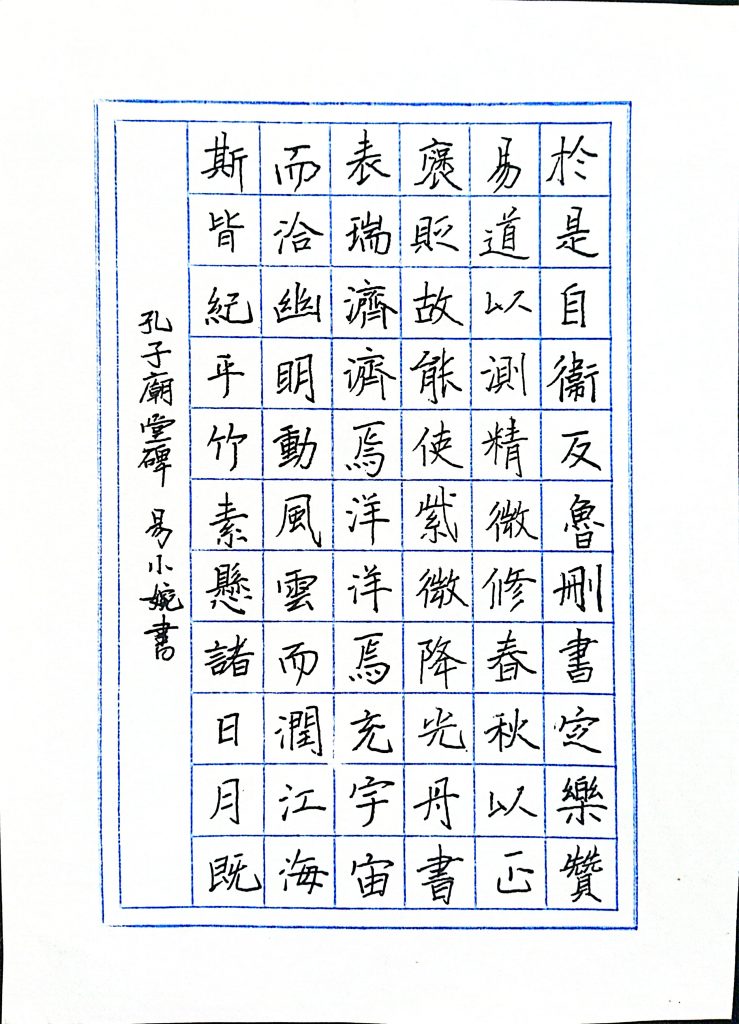 於是自衞反魯刪書定樂贊
易道以測精微修春秋以正
褒貶故能使紫微降光丹書
表瑞濟濟焉洋洋焉充宇宙
而洽幽明動風雲而潤江海
斯皆紀乎竹素懸諸日月既
孔子廟堂碑 易小婉書